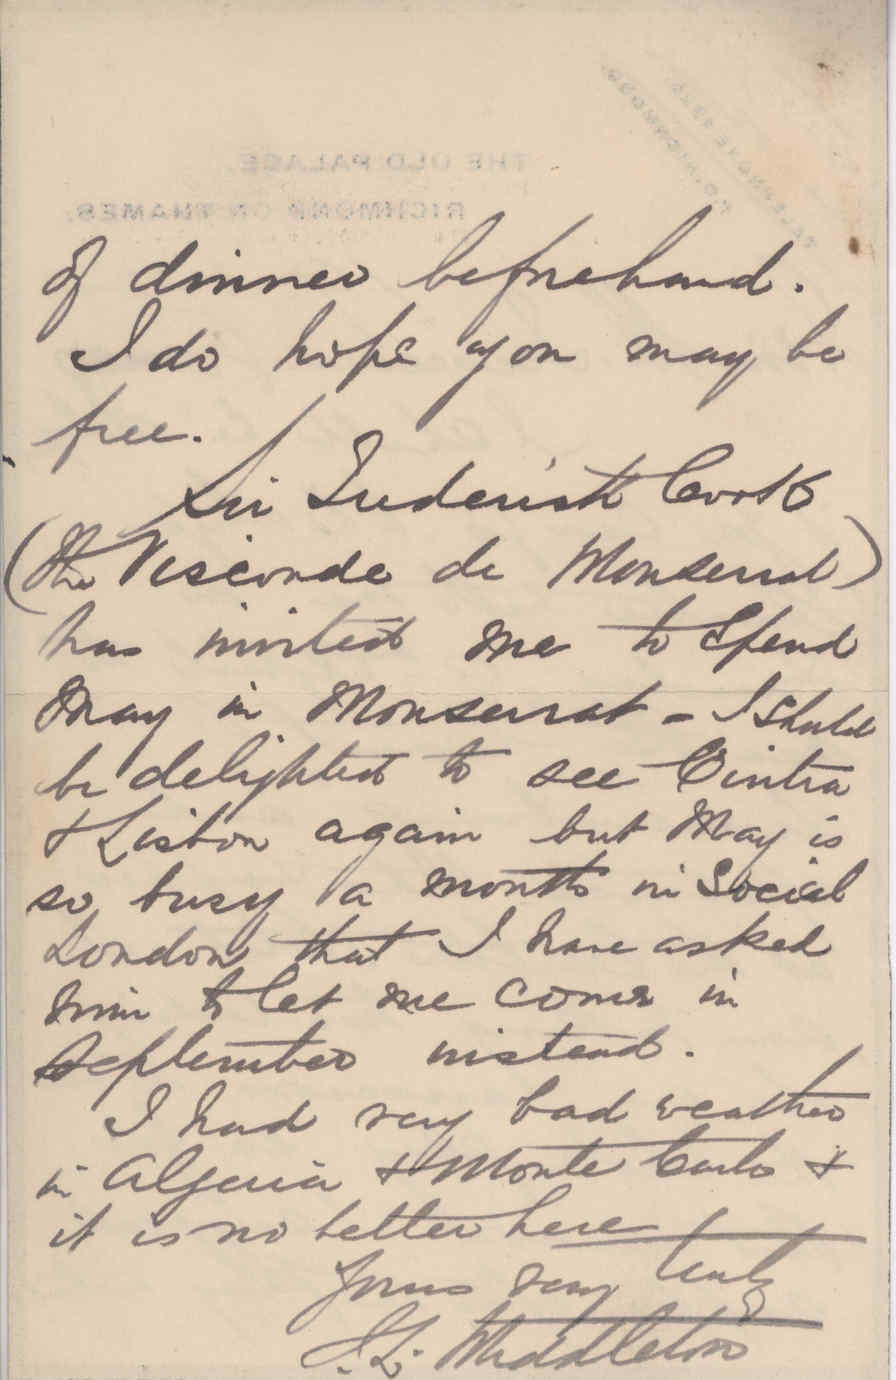 THE OLD PALACE,
RICHMOND ON THAMES.
of dinner beforehand.
I do hope you may be
free.
Sir Frederick Cook
(the Visconde de Monserrat)
has invited me to spend
May in Monserrat - I should
be delighted to see Cintra
& Lisbon again but May is
so busy a month in Social
London that I have asked
him to let me come in
September instead.
I had very bad weather
in Algeria & Monte Carlo &
it is no better here
Yours very truly
J. L. Middleton